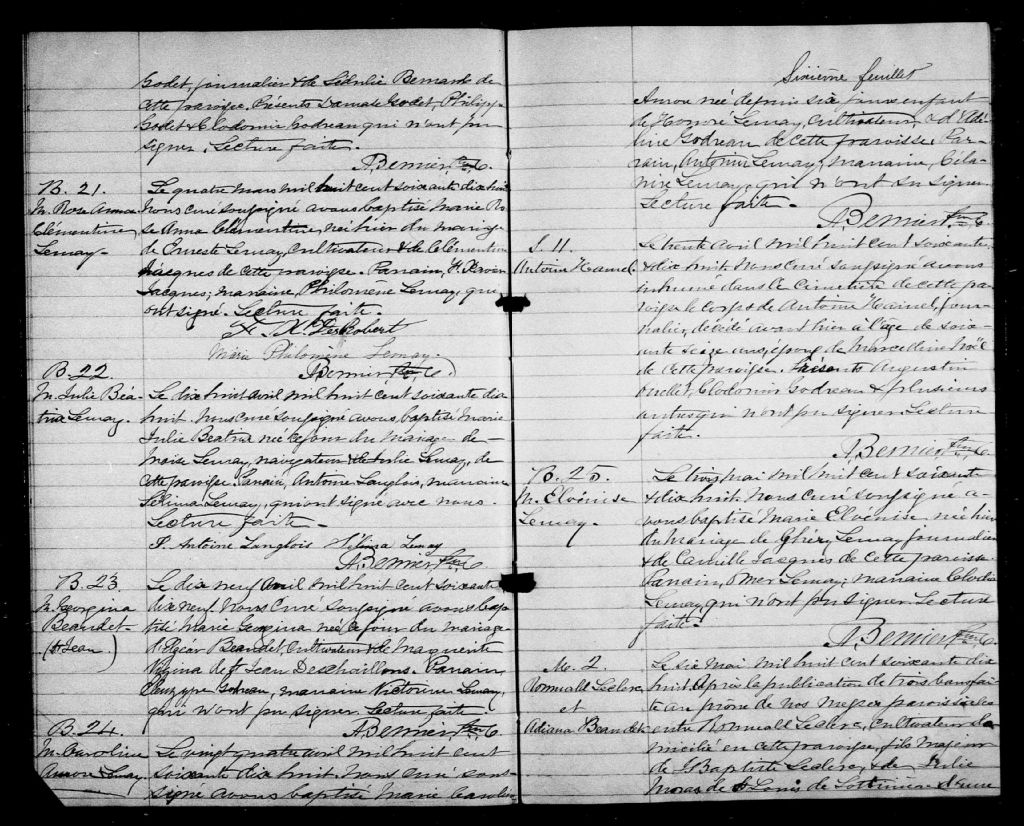 Godet, journalier & de Sédulie Bernard de
cette paroisse. Présents Damase Godet, Philippe
Godet & Clodomir Godreau qui n'ont pu
signer. Lecture faite.
A. Bernier Ptre C.
B. 21.
M. Rose Anna
Clémentine
Lemay
Le quatre mars mil huit cent soixante dix huit
Nous curé soussigné avons baptisé Marie Ro
se Anna Clémentine, née hier du mariage
de Erneste Lemay, Cultivateur & de Clémentine
Jacques de cette paroisse. Parrain,
Jacques; marraine, Philomène Lemay, qui
ont signé. Lecture faite.
Marie Philomène Lemay.
A. Bernier Ptre C.
B. 22.
M. Julie Béa
trix Lemay.
Le dix huit avril mil huit cent soixante dix
huit. Nous curé soussigné avons baptisé Marie
Julie Beatrix née ce jour du mariage de
Moïse Lemay, navigateur & de Julie Lemay, de
cette paroisse. Parrain, Antoine Langlois, marraine
Lemay, qui ont signé avec nous.
Lecture faite.
Antoine Langlois Lemay
A. Bernier Ptre C.
B. 23
M. Georgina
Beaudet
(St Jean)
Le dix neuf Avril mil huit cent soixante
dix neuf Nous Curé soussigné avons bap
tisé Marie Georgina née ce jour du mariage
d'Edgar Beaudet, Cultivateur & de Marguerite
de St Jean Deschaillons. Parrain
Godreau, marraine Victorine Lemay,
qui n'ont pu signer. Lecture faite.
A. Bernier Ptre C.
B. 24.
M. Caroline
Aurore Lemay
Le vingt quatre avril mil huit cent
soixante dix huit, Nous curé sous
signé avons baptisé Marie Caroline
Sixième feuillet
Aurore née depuis six jours enfant
de Honoré Lemay, Cultivateur & d'Adé
line Godreau de cette paroisse. Par
rain, Antonin Lemay, marraine, Céla
nire Lemay, qui n'ont su signer.
Lecture faite.
A. Bernier Ptre C.
S. 11.
Antoine Hamel.
Le trente Avril mil huit cent soixante
& dix huit Nous Curé soussigné avons
inhumé dans le Cimetière de cette pa
roisse le corps de Antoine Hamel, jour
nalier, décédé avant hier à l'âge de soix
ante seize ans, époux de Marcelline Noël
de cette paroisse. Présents Augustin
Ouellet, Clodomir Godreau & plusieurs
autres qui n'ont pu signer Lecture
faite.
A. Bernier Ptre C.
B. 25.
M. Elvénise
Lemay.
Le trois mai mil huit cent soixante
& dix huit Nous Curé soussigné a
vons baptisé Marie Elvénise, née hier
du mariage de Lemay journalier
& de Camille Jacques de cette paroisse
Parrain, Omer Lemay; marraine
Lemay qui n'ont pu signer. Lecture
faite.
A. Bernier Ptre C.
M. 2.
Romuald Leclerc
et
Adiana Beaudet
Le six Mai mil huit cent soixante dix
huit. Après la publication de trois bans fai
te au prône de nos Messes paroissiales
entre Romuald Leclerc, Cultivateur do
micilié en cette paroisse, fils majeur
de J. Baptiste Leclerc, & de Julie
Moras de St Louis de Lotbinière d'une